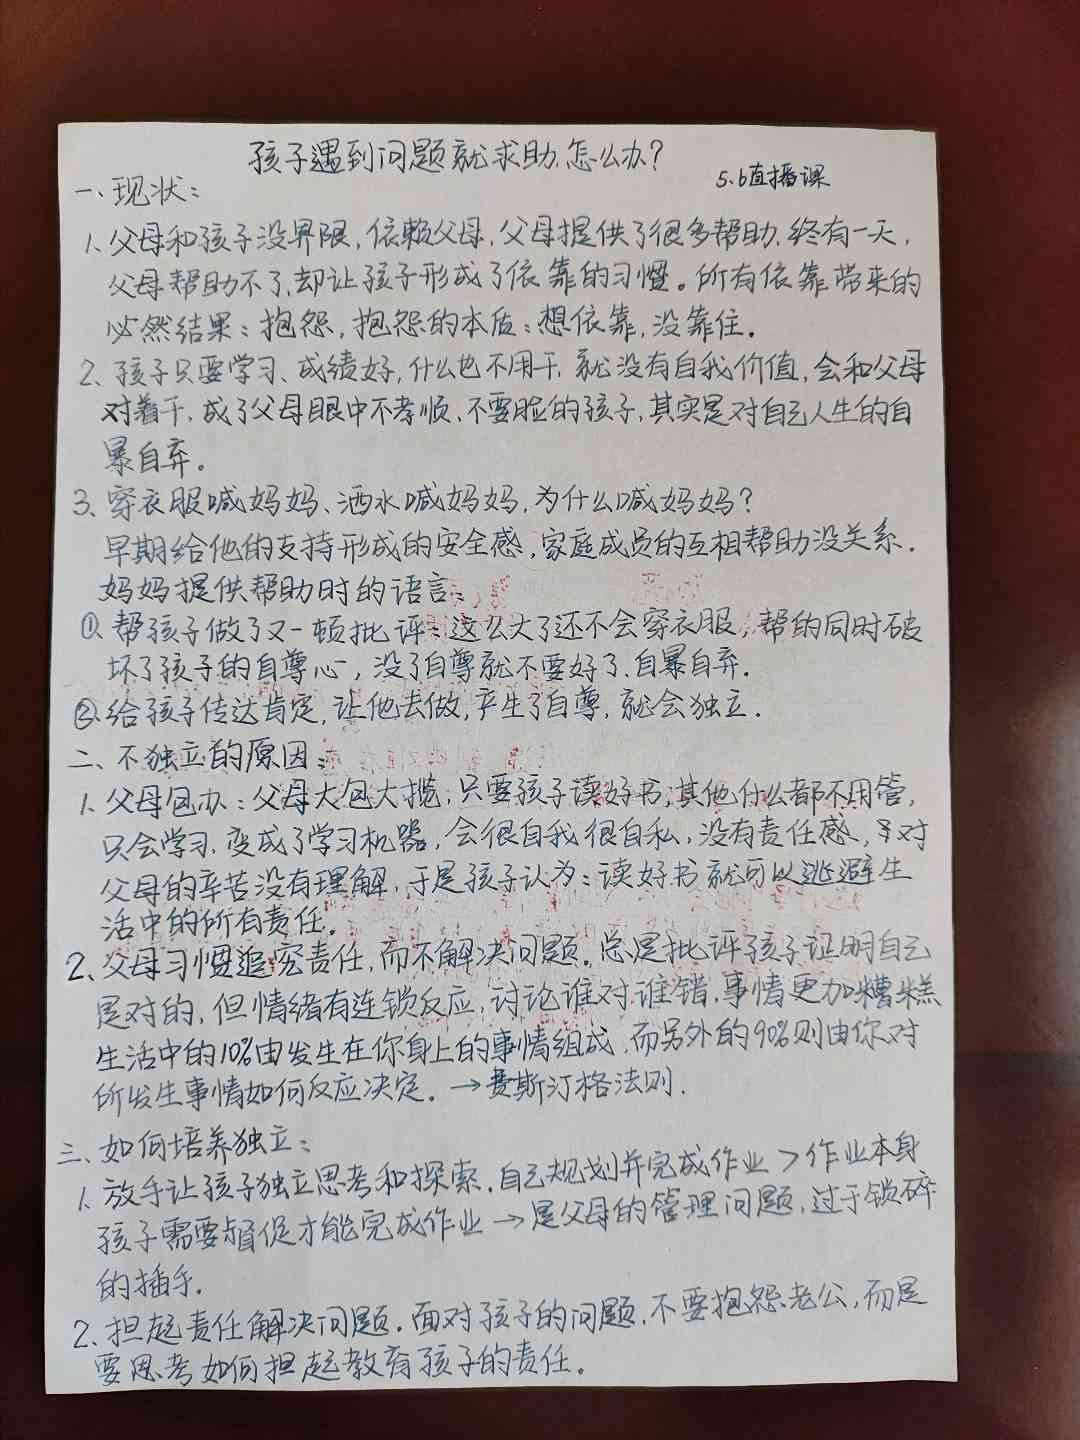 孩子遇到问题就求助,怎么办?
5.6直播课
一、现状:
1、父母和孩子没界限,依赖父母,父母提供了很多帮助,终有一天,
父母帮助不了,却让孩子形成了依靠的习惯。所有依靠带来的
必然结果:抱怨,抱怨的本质:想依靠,没靠住.
2、孩子只要学习、成绩好,什么也不用干,就没有自我价值,会和父母
对着干,成了父母眼中不孝顺、不要脸的孩子,其实是对自己人生的自
暴自弃。
3、穿衣服喊妈妈、洒水喊妈妈,为什么喊妈妈?
早期给他的支持形成的安全感,家庭成员的互相帮助没关系.
妈妈提供帮助时的语言:
①、帮孩子做了又一顿批评:这么大了还不会穿衣服,帮的同时破
坏了孩子的自尊心,没了自尊就不要好了,自暴自弃.
②、给孩子传达肯定,让他去做,产生了自尊,就会独立.
二、不独立的原因:
1、父母包办:父母大包大揽,只要孩子读好书,其他什么都不用管,
只会学习,变成了学习机器,会很自我很自私,没有责任感,对
父母的辛苦没有理解,于是孩子认为:读好书就可以逃避生
活中的所有责任.
2、父母习惯追究责任,而不解决问题。总是批评孩子证明自己
是对的,但情绪有连锁反应,讨论谁对谁错,事情更加糟糕
生活中的10%由发生在你身上的事情组成,而另外的90%则由你对
所发生事情如何反应决定.→费斯汀格法则.
三、如何培养独立:
1、放手让孩子独立思考和探索,自己规划并完成作业>作业本身
孩子需要督促才能完成作业→是父母的管理问题,过于锁碎
的插手.
2、担起责任解决问题.面对孩子的问题,不要抱怨老公,而是
要思考如何担起教育孩子的责任。